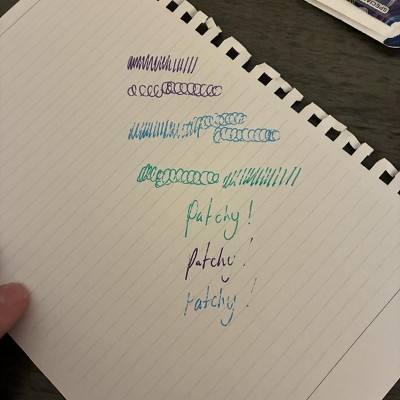 Patchy!
Patchy!
Patchy!